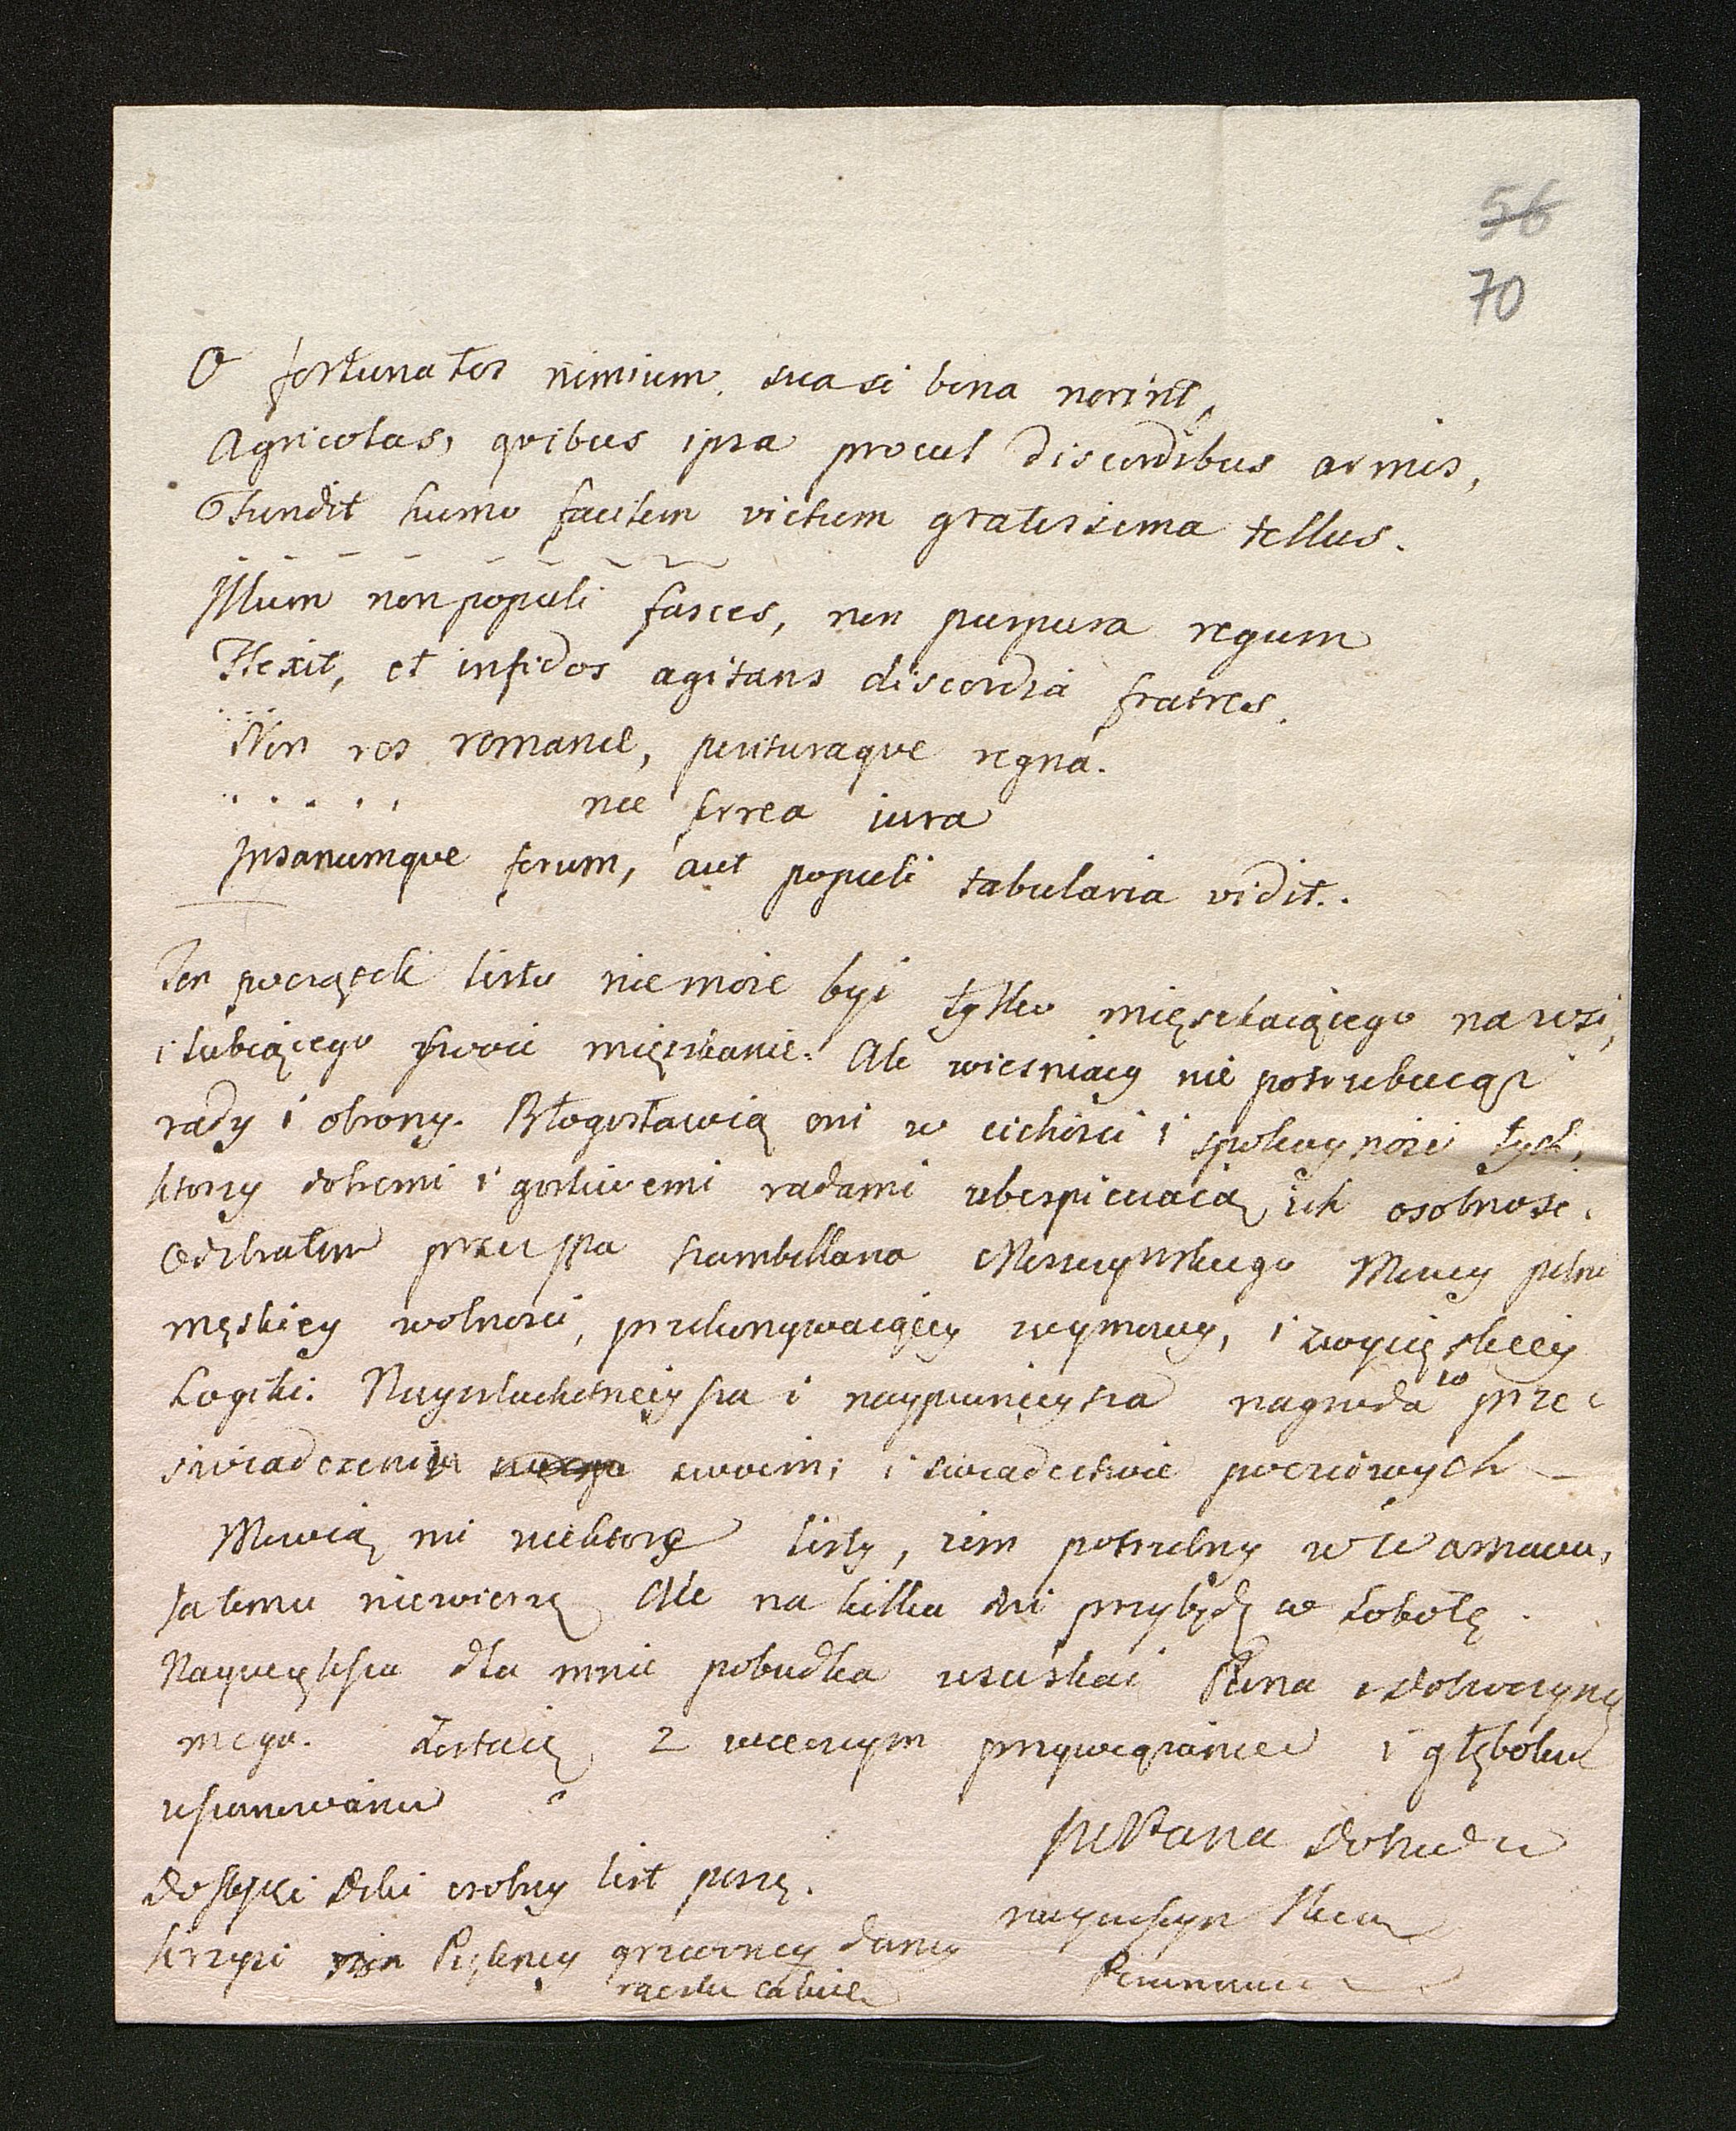 56
70
O fortunatos nimium, sua si bona norint,
Agricolas, quibus ipsa procul discordibus armis,
Fundit humo facilem victum gratissima tellus.
Illum non populi fasces, non purpura regum
Flexit, et infidos agitans discordia fratres.
Non res romanæ, perituraque regna.
. . . . . nec ferrea iura
Insanumque forum, aut populi tabularia vidit..
Ten początek listu nie może być tylko mięszkaiącego na wsi,
i lubiącego swoie mięszkanie. Ale wiesniacy nie potrzebuiąż
rady i obrony. Błogosławią oni w cichości i spokoyności tych,
ktorzy dobremi i gorliwemi radami ubespieczaią ich osobność.
Odebrałem przez JPa Szambellana Mowy pełne
męskiey wolności, przekonywaiącey wymowy, i zwycięskiey
Logiki. Nayszlachetnieysza i naypewnieysza nagroda w prze
świadczeniu swoim; i świadectwie poczciwych —
Mowią mi niektore listy, żem potrzebny w Warszawie,
Ja temu niewierzę Ale na kilka dni przybędę w Sobotę.
Naywiększa dla mnie pobudka uściskać Pana i Dobroczyńcę
mego. Zostaię z wiecznym przywiązaniem i głębokim
uszanowaniem
JWPana Dobrodzieia
nayniższym sługą
Do osobny list piszę.
Pięknej grzeczney